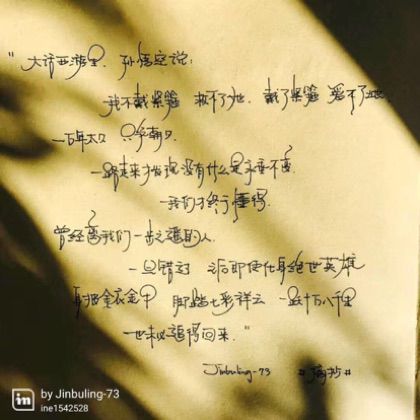 "大话西游里，孙悟空说：
我不戴紧箍 救不了她，戴了紧箍 爱不了她。
一万年太久 只争朝夕
一路走来才发现没有什么是永垂不变
我们才终于懂得，
曾经离我们一步之遥的人，
一旦错过 之后即使化身绝世英雄
身披金衣金甲 脚踏七彩祥云 一跃十万八千里
也未必追得回来。"
Jinbuling-73 #摘抄#
by Jinbuling-73
ine1542528
in